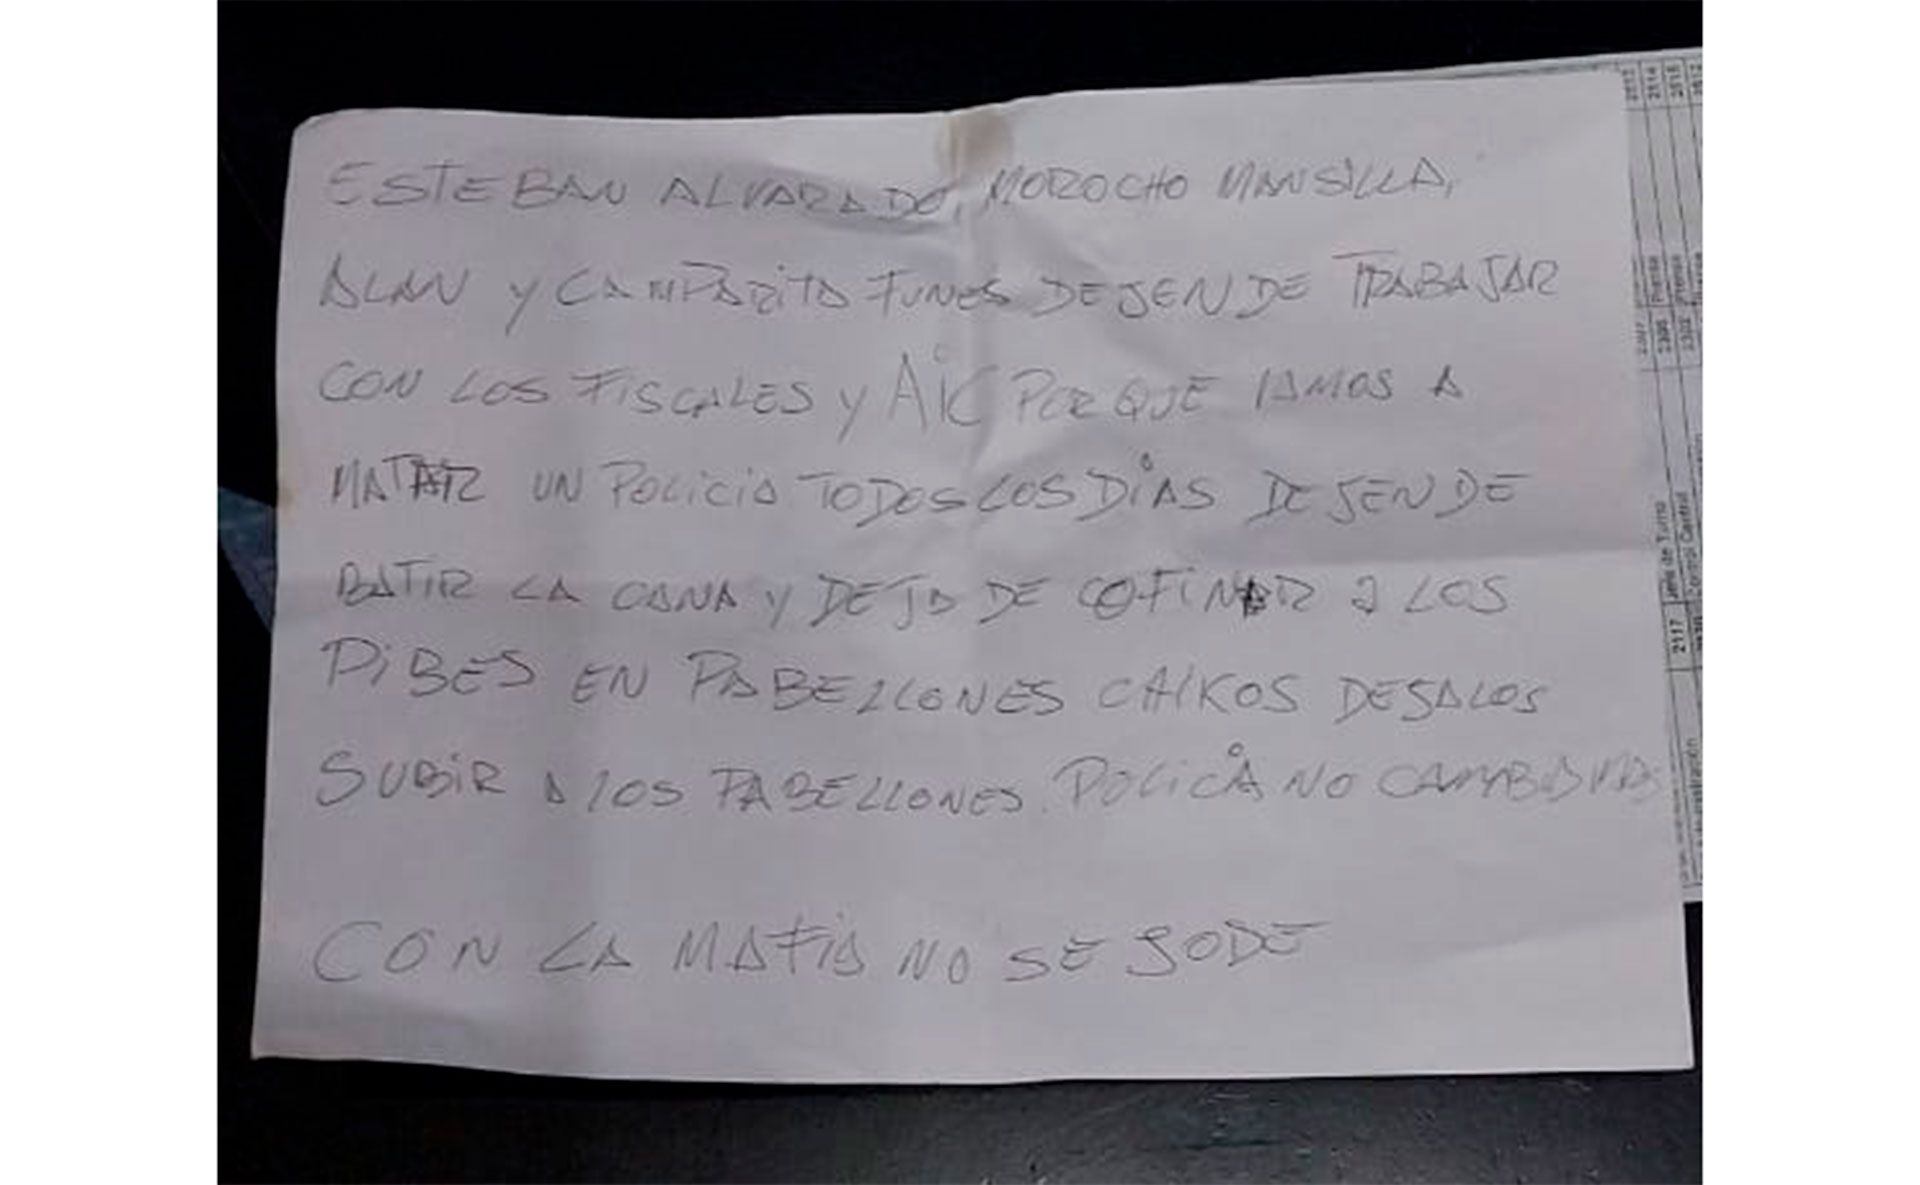 ESTEBAN ALVARADO, MOROCHO MANSILLA,
ALAN Y CAMPARITA FUNES DEJEN DE TRABAJAR
CON LOS FISCALES Y AIC PORQUE VAMOS A
MATAR UN POLICIA TODOS LOS DÍAS DEJEN DE
BATIR LA CANA Y DEJA DE COFINAR A LOS
PIBES EN PABELLONES CHIKOS DEJALOS
SUBIR A LOS PABELLONES. POLICÍA NO
CON LA MAFIA NO SE JODE
2117 Jefe de Turno
Control Central